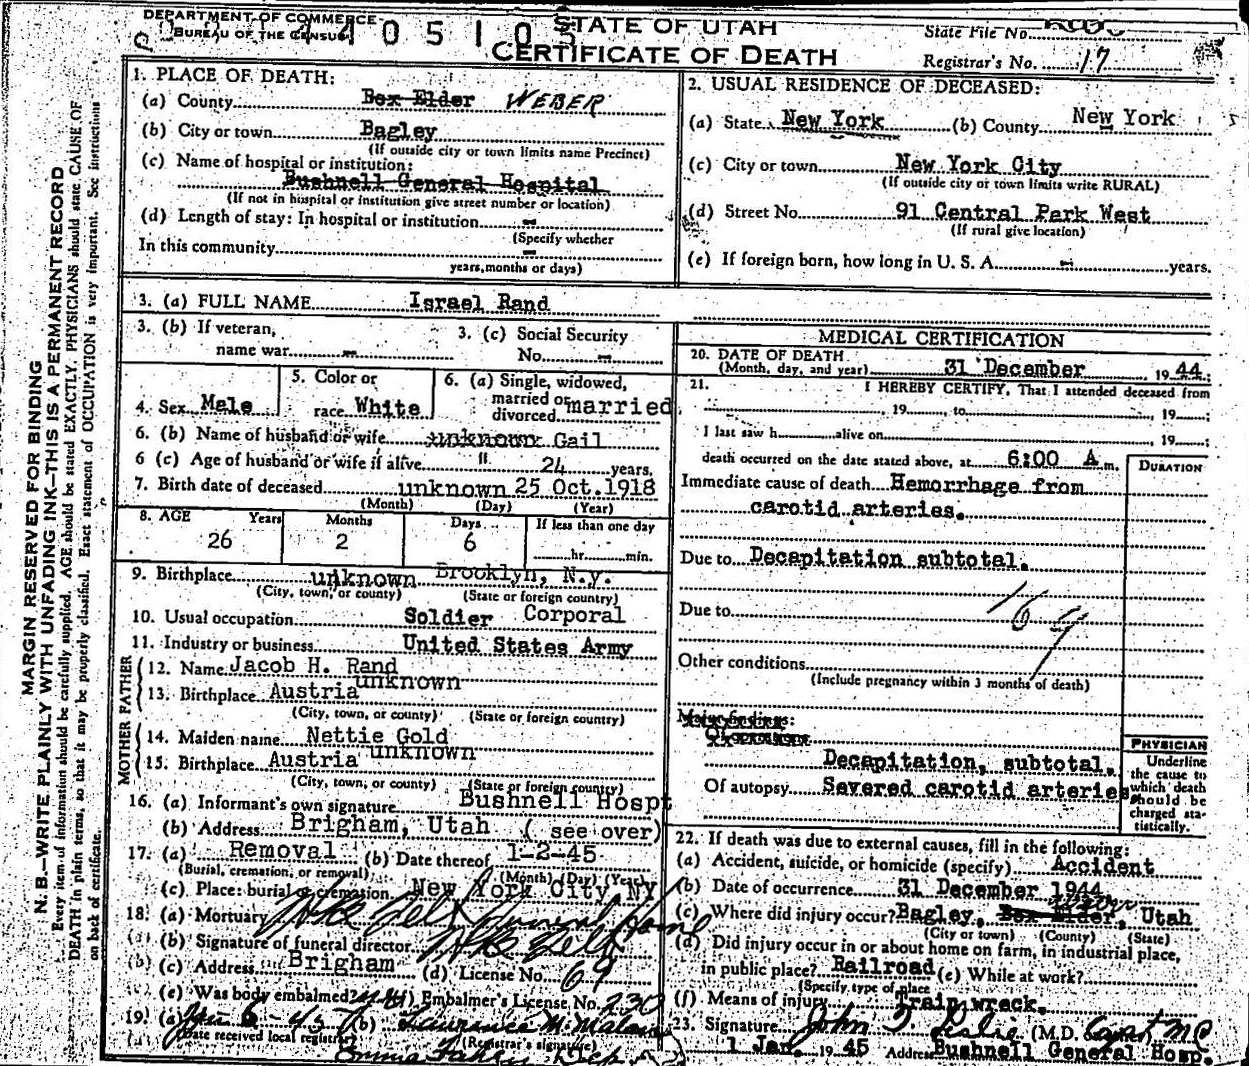 DEPARTMENT OF COMMERCE
BUREAU OF THE CENSUS
STATE OF UTAH
CERTIFICATE OF DEATH
State File No.
Registrar's No. 17
MARGIN RESERVED FOR BINDING
N. B.—WRITE PLAINLY WITH UNFADING INK—THIS IS A PERMANENT RECORD
Every item of information should be carefully supplied. AGE should be stated EXACTLY. PHYSICIANS should state CAUSE OF
DEATH in plain terms, so that it may be properly classified. Exact statement of OCCUPATION is very important. See instructions
on back of certificate.
1. PLACE OF DEATH:
(a) County Box Elder WEBER
(b) City or town Bagley
(If outside city or town limits name Precinct)
(c) Name of hospital or institution:
Bushnell General Hospital
(If not in hospital or institution give street number or location)
(d) Length of stay: In hospital or institution -
(Specify whether
In this community -
years, months or days)
2. USUAL RESIDENCE OF DECEASED:
(a) State New York (b) County New York
(c) City or town New York City
(If outside city or town limits write RURAL)
(d) Street No. 91 Central Park West
(If rural give location)
(e) If foreign born, how long in U. S. A. - years.
3. (a) FULL NAME Israel Rand
3. (b) If veteran,
name war -
3. (c) Social Security
No. -
4. Sex Male
5. Color or
race White
6. (a) Single, widowed,
married or
divorced married
6. (b) Name of husband or wife unknown Gail
6 (c) Age of husband or wife if alive " 24 years.
7. Birth date of deceased unknown 25 Oct. 1918
(Month) (Day) (Year)
8. AGE Years Months Days If less than one day
26 2 6 hr. min.
9. Birthplace unknown Brooklyn, N.y.
(City, town, or county) (State or foreign country)
10. Usual occupation Soldier Corporal
11. Industry or business United States Army
FATHER
12. Name Jacob H. Rand
unknown
13. Birthplace Austria
(City, town, or county) (State or foreign country)
MOTHER
14. Maiden name Nettie Gold
unknown
15. Birthplace Austria
(City, town, or county) (State or foreign country)
16. (a) Informant's own signature Bushnell Hospt
(b) Address Brigham, Utah ( see over)
17. (a) Removal (b) Date thereof 1-2-45
(Burial, cremation, or removal) (Month) (Day) (Year)
(c) Place: burial or cremation New York City NY
18. (a) Mortuary Funeral Home
(b) Signature of funeral director
(c) Address Brigham (d) License No. 69
(e) Was body embalmed? (f) Embalmer's License No. 230
19. (a) (b) Lawrence M. Malan
(Date received local registrar) (Registrar's signature)
MEDICAL CERTIFICATION
20. DATE OF DEATH
(Month, day, and year) 31 December 1944
21. I HEREBY CERTIFY, That I attended deceased from
, 19 , to , 19 ;
I last saw h alive on 19 ;
death occurred on the date stated above, at 6:00 A m.
DURATION
Immediate cause of death Hemorrhage from
carotid arteries.
Due to Decapitation subtotal.
Due to
169
Other conditions
(Include pregnancy within 3 months of death)
Major findings:
Of operations
Decapitation, subtotal.
Of autopsy Severed carotid arteries
PHYSICIAN
Underline
the cause to
which death
should be
charged sta-
tistically.
22. If death was due to external causes, fill in the following:
(a) Accident, suicide, or homicide (specify) Accident
(b) Date of occurrence 31 December 1944
(c) Where did injury occur? Bagley, Box Elder, Utah
(City or town) (County) (State)
(d) Did injury occur in or about home on farm, in industrial place,
in public place? Railroad (e) While at work?
(Specify type of place
(f) Means of injury Train wreck.
23. Signature John T. Leslie (M.D. Capt MC
1 Jan. 1945 Address Bushnell General Hosp.